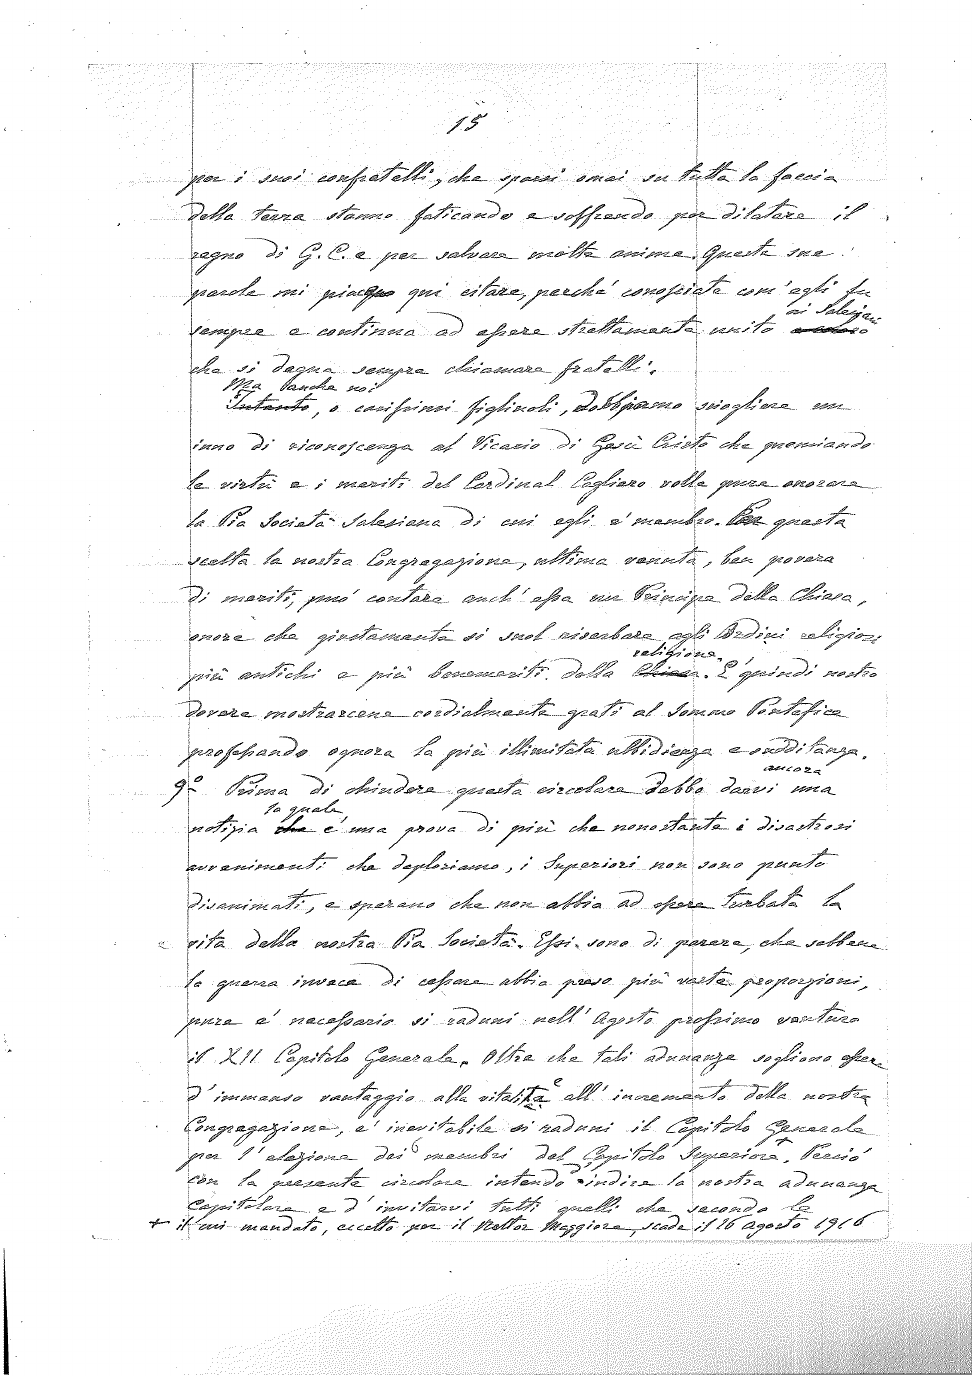 15
per i suoi confratelli, che sparsi omai su tutta la faccia
della terra stanno faticando e soffrendo per dilatare il
regno di G. C. e per salvare molte anime. Queste sue
parole mi piacque qui citare, perché conosciate com'egli fu
ai Salesiani
sempre e continua ad essere strettamente unito
che si degna sempre chiamare fratelli.
Ma anche noi
Intanto, o carissimi figliuoli, dobbiamo sciogliere un
inno di riconoscenza al Vicario di Gesù Cristo che premiando
le virtù e i meriti del Cardinal Cagliero volle pure onorare
la Pia Società Salesiana di cui egli é membro. Per questa
scelta la nostra Congregazione, ultima venuta, ben povera
di meriti, può contare anch'essa un Principe della Chiesa,
onore che giustamente si suol riserbare agli Ordini religiosi
religione
più antichi e più benemeriti della Chiesa. E' quindi nostro
dovere mostrarcene cordialmente grati al Sommo Pontefice
professando ognora la più illimitata ubbidienza e sudditanza.
ancora
9° Prima di chiudere questa circolare debbo darvi una
la quale
notizia che é una prova di più che nonostante i disastrosi
avvenimenti che deploriamo, i Superiori non sono punto
disanimati, e sperano che non abbia ad essere turbata la
vita della nostra Pia Società. Essi sono di parere, che sebbene
la guerra invece di cessare abbia preso più vaste proporzioni,
pure é necessario si raduni nell'Agosto prossimo venturo
il XII Capitolo Generale. Oltre che tali adunanze sogliono essere
d'immenso vantaggio alla vitalità e all'incremento della nostra
Congregazione, é inevitabile si raduni il Capitolo Generale
per l'elezione dei 6 membri del Capitolo Superiore +. Perciò
con la presente circolare intendo d'indire la nostra adunanza
Capitolare e d'invitarvi tutti quelli che secondo le
+ il cui mandato, eccetto per il Rettor Maggiore, scade il 16 agosto 1916